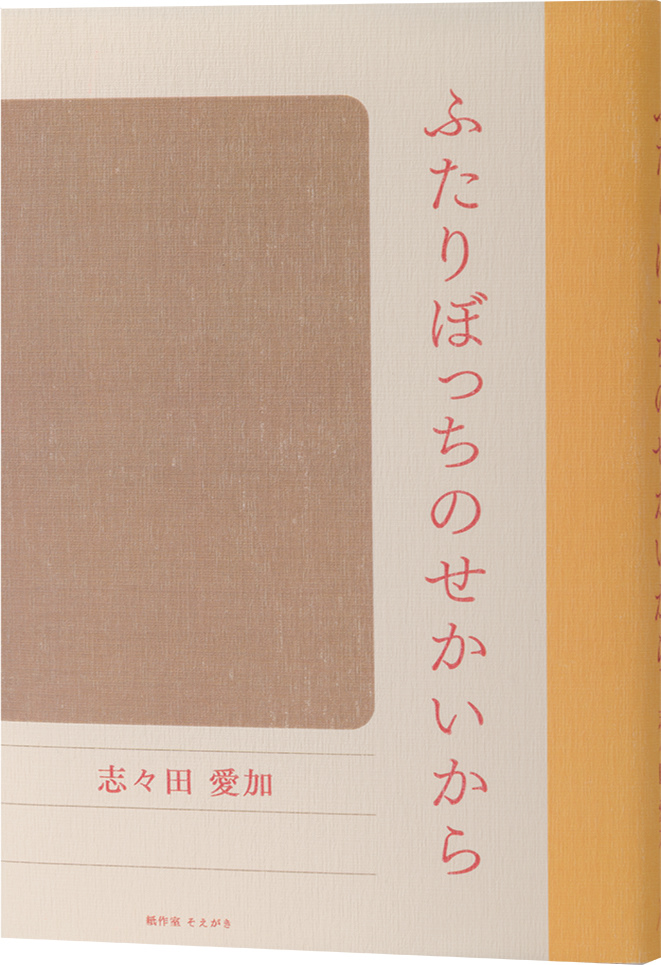 ふたりぼっちのせかいから
志々田 愛加
紙作室 そえがき